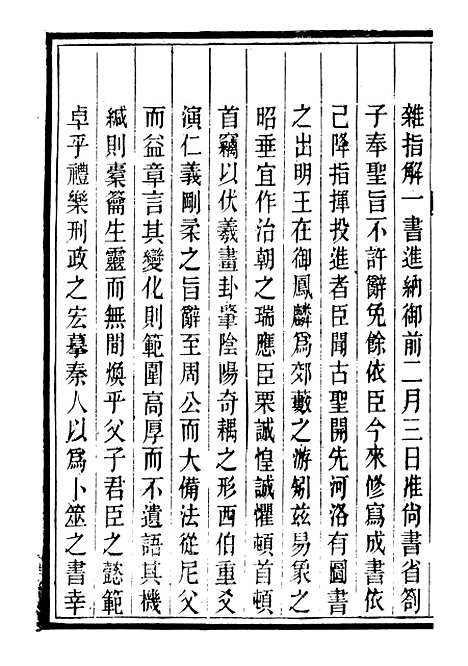 雜指解一書進納御前二月三日准尚書省劄
子奉聖旨不許辭免餘依臣今來修寫成書依
己降指揮投進者臣聞古聖開先河洛有圖書
之出明王在御鳳麟爲郊藪之游矧兹易象之
昭垂宜作治朝之瑞應臣栗誠惶誠懼頓首頓
首竊以伏羲畫卦肇陰陽奇耦之形西伯重爻
演仁義剛柔之旨辭至周公而大備法從尼父
而益章言其變化則範圍高厚而不遺語其機
緘則橐籥生靈而無間煥乎父子君臣之懿範
卓乎禮樂刑政之宏摹秦人以爲卜筮之書幸